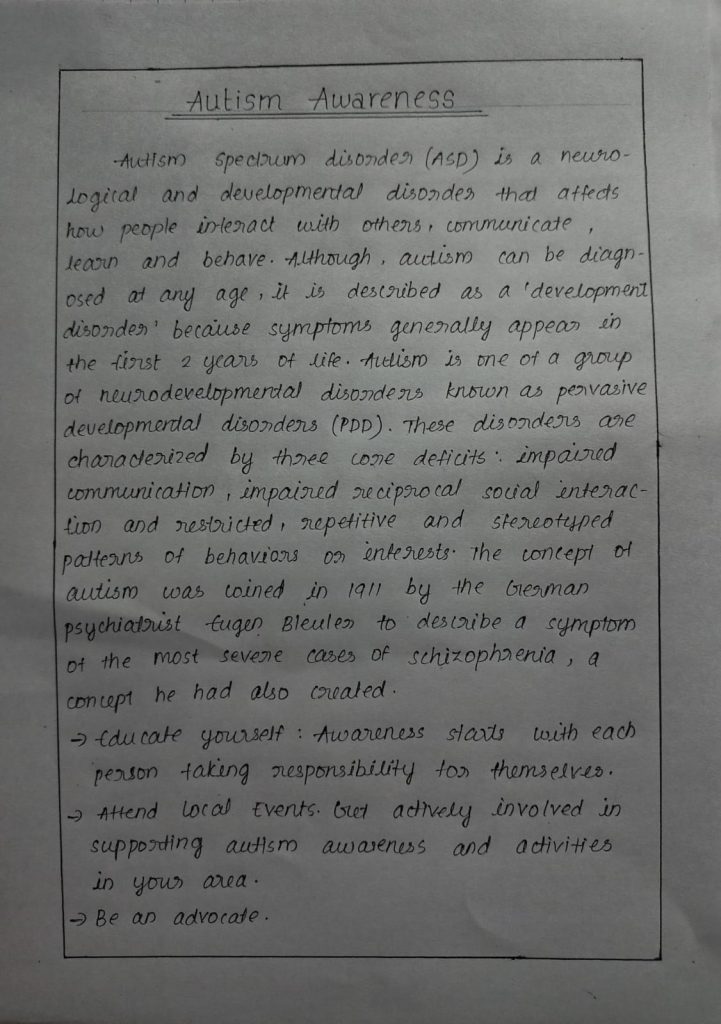 Autism Awareness
Autism Spectrum disorder (ASD) is a neuro-
logical and developmental disorder that affects
how people interact with others, communicate,
learn and behave. Although, autism can be diagn-
osed at any age, it is described as a 'development
disorder' because symptoms generally appear in
the first 2 years of life. Autism is one of a group
of neurodevelopmental disorders known as pervasive
developmental disorders (PDD). These disorders are
characterized by three core deficits: impaired
communication, impaired reciprocal social interac-
tion and restricted, repetitive and stereotyped
patterns of behaviors or interests. The concept of
autism was coined in 1911 by the German
psychiatrist Eugen Bleuler to describe a symptom
of the most severe cases of schizophrenia, a
concept he had also created.
→ Educate yourself: Awareness starts with each
person taking responsibility for themselves.
→ Attend Local Events. Get actively involved in
supporting autism awareness and activities
in your area.
→ Be an advocate.